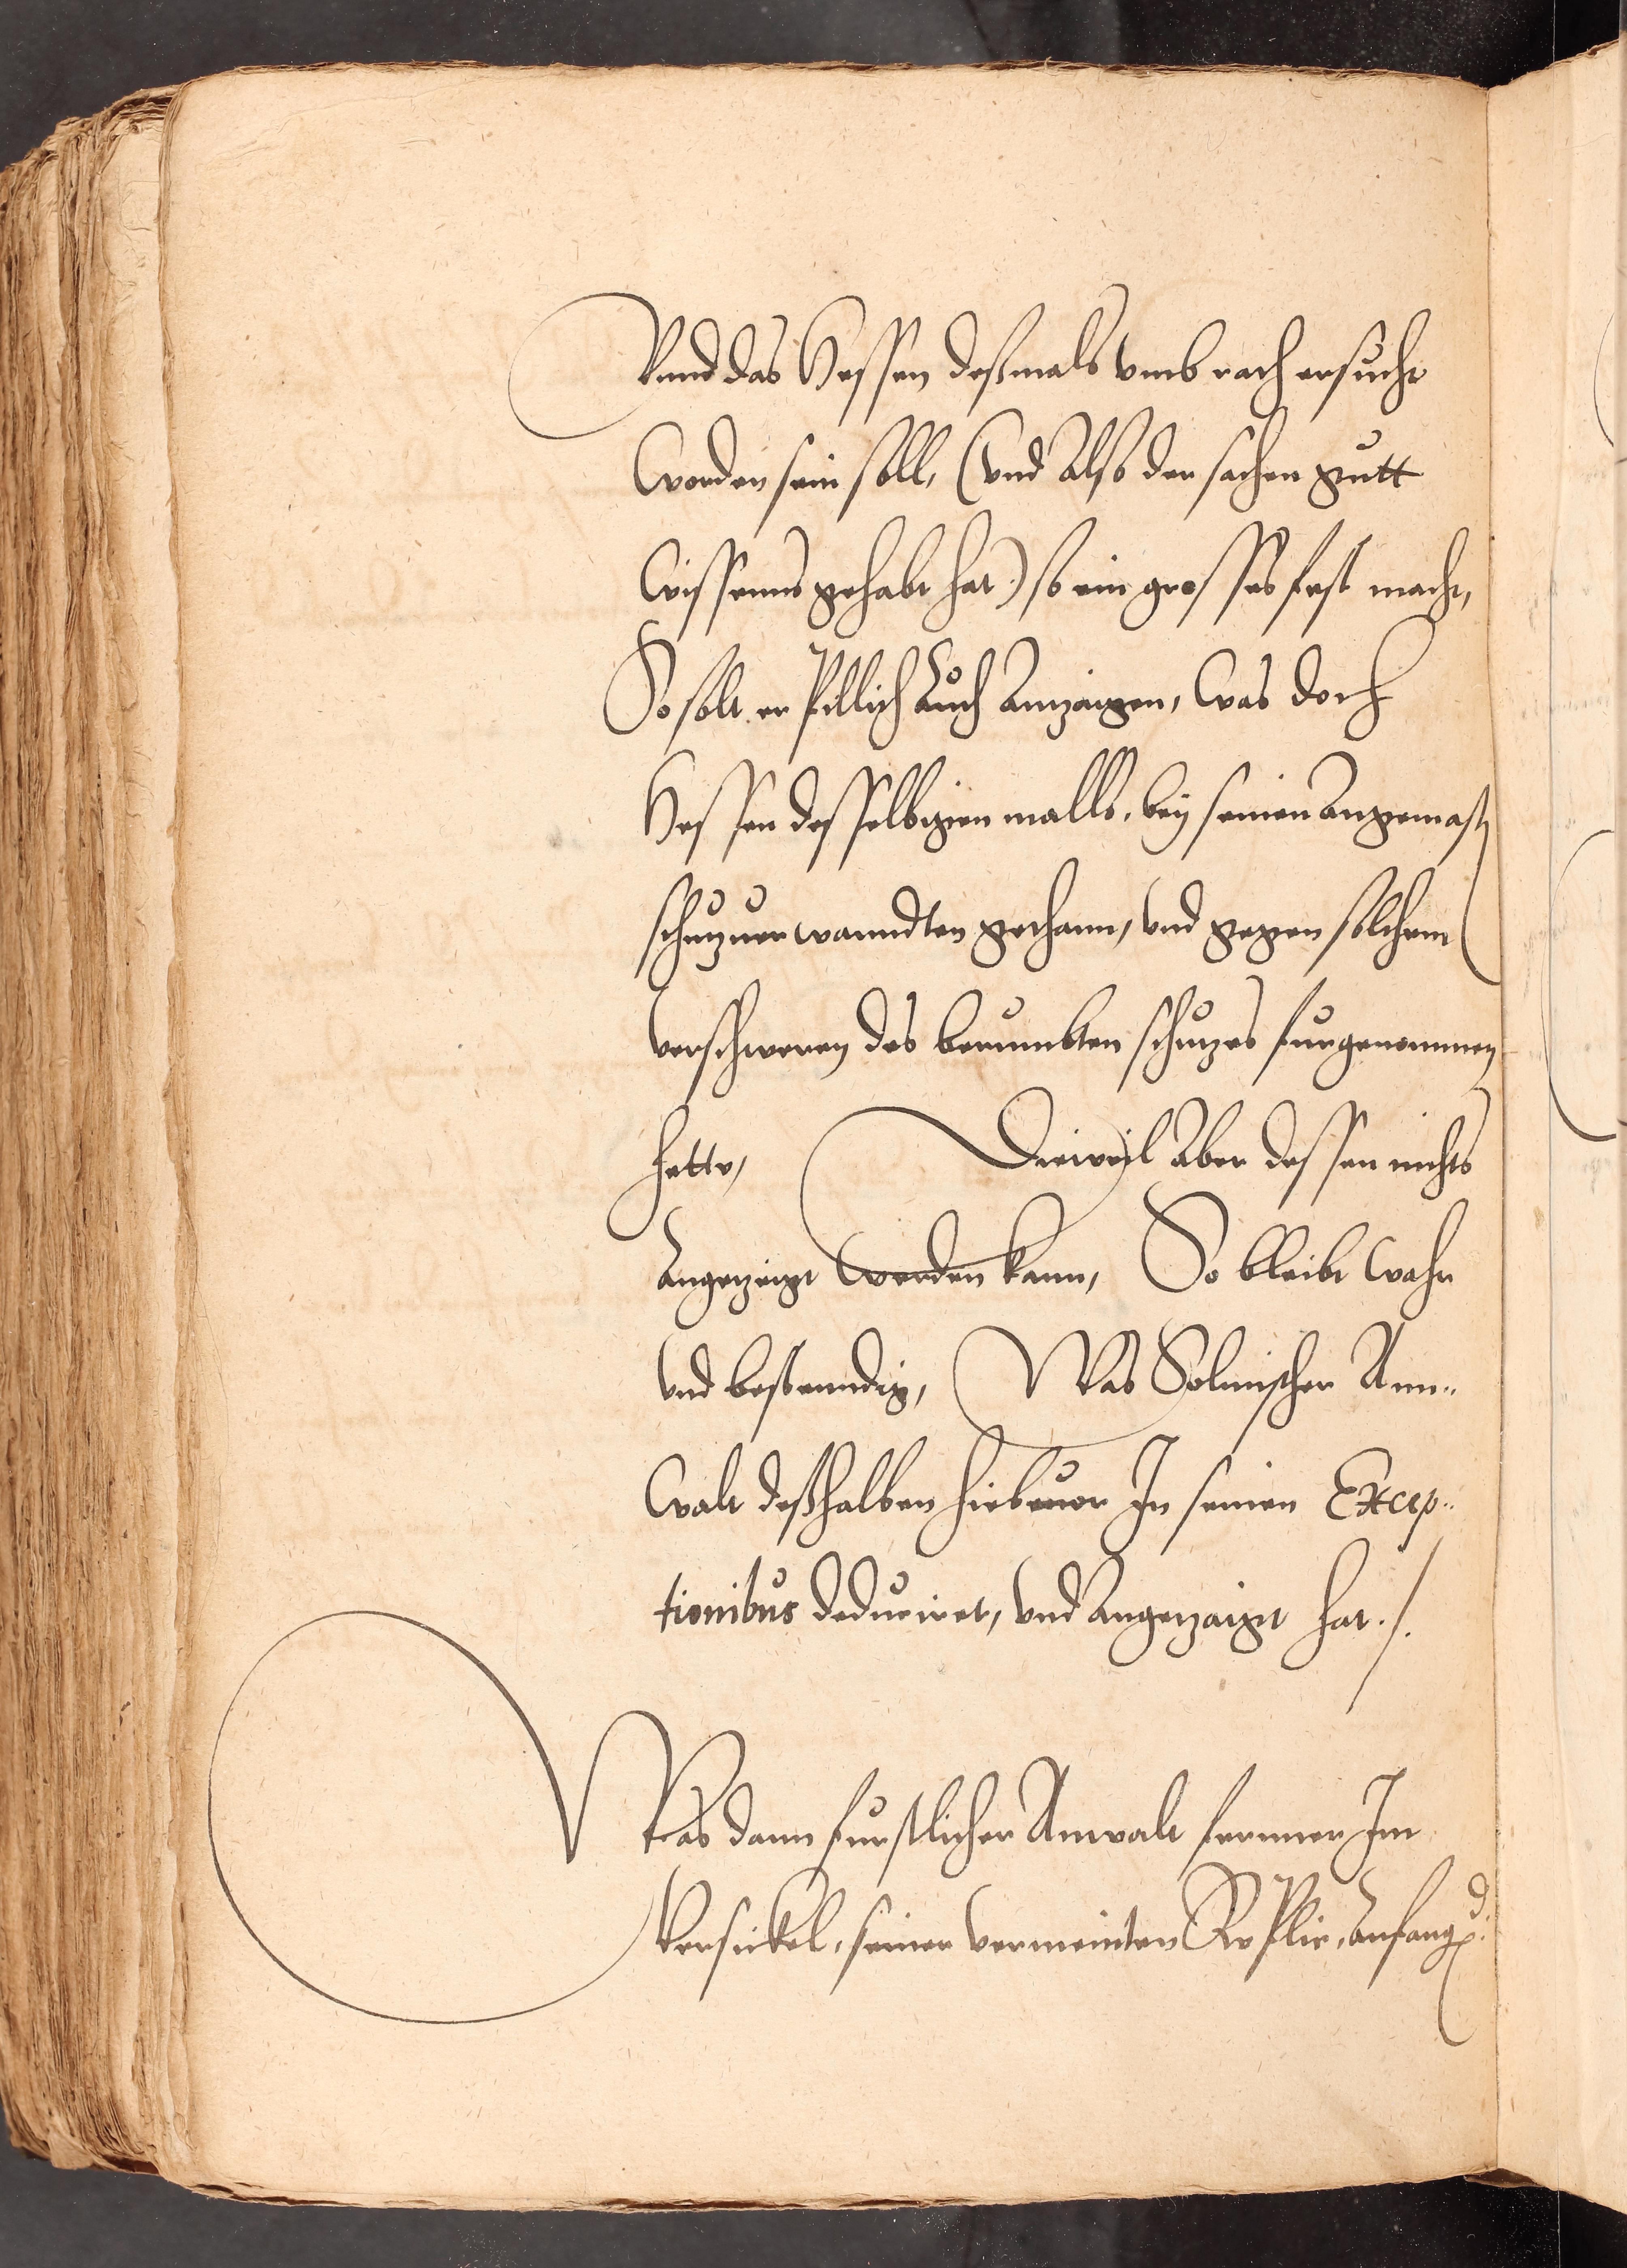 Vnnd das Hessen deßmals vmb rath ersucht
worden sein soll, (vnd also der sachen gutt
wissenns gehabt hat) so ein grosses fest macht,
So solt er pillich auch anzaigen, was doch
Hessen desselbigen malls, bey seinen angemasten
schutzuerwanndten gethann, vnd gegen solchem
verschweren des berumbten schutzes furgenommen
hette, Dieweyl aber dessen nichts
angezaigt werden kann, So bleibt wahr
vnd bestenndig, Was Solmischer Ann-
walt deßhalben hieuor In seinen Excep-
tionibus deducirt, vnd angezaigt hat./.
Was dann furstlicher Anwalt ferner Im
versickel, seiner vermeinten Replic, anfangend